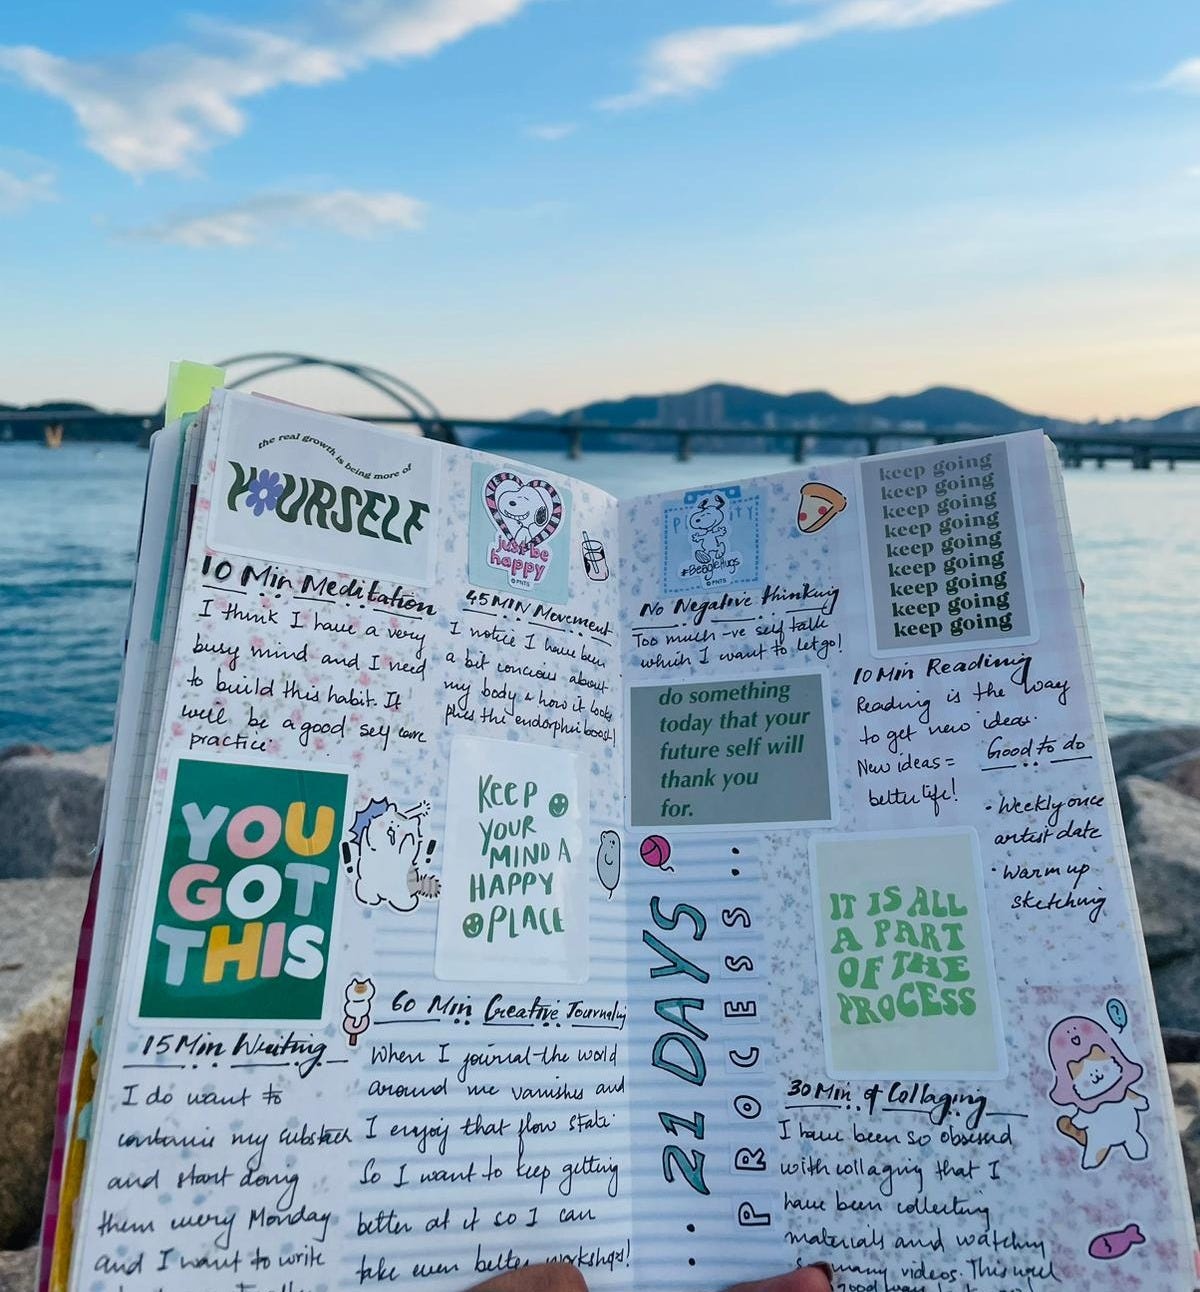 the real growth is being more of
YOURSELF
10 Min Meditation
I think I have a very
busy mind and I need
to build this habit. It
will be a good self care
practice.
YOU
GOT
THIS
15 Min Writing
I do want to
continue my substack
and start doing
them every Monday
and I want to write
just be
happy
© PNTS
45 MIN Movement
I notice I have been
a bit concious about
my body & how it looks
plus the endorphin boost!
KEEP
YOUR
MIND A
HAPPY
PLACE
60 Min Creative Journaling
When I journal the world
around me vanishes and
I enjoy that flow state.
So I want to keep getting
better at it so I can
take even better workshops!
#BeagleHugs
© PNTS
No Negative thinking
Too much -ve self talk
which I want to let go!
do something
today that your
future self will
thank you
for.
21 DAYS
PROCESS
keep going
keep going
keep going
keep going
keep going
keep going
keep going
keep going
keep going
10 Min Reading
Reading is the way
to get new ideas.
New ideas =
better life!
Good to do
• Weekly once
artist date
• Warm up
sketching
IT IS ALL
A PART
OF THE
PROCESS
30 Min of Collaging
I have been so obsessed
with collaging that I
have been collecting
materials and watching
so many videos. This will
good way to